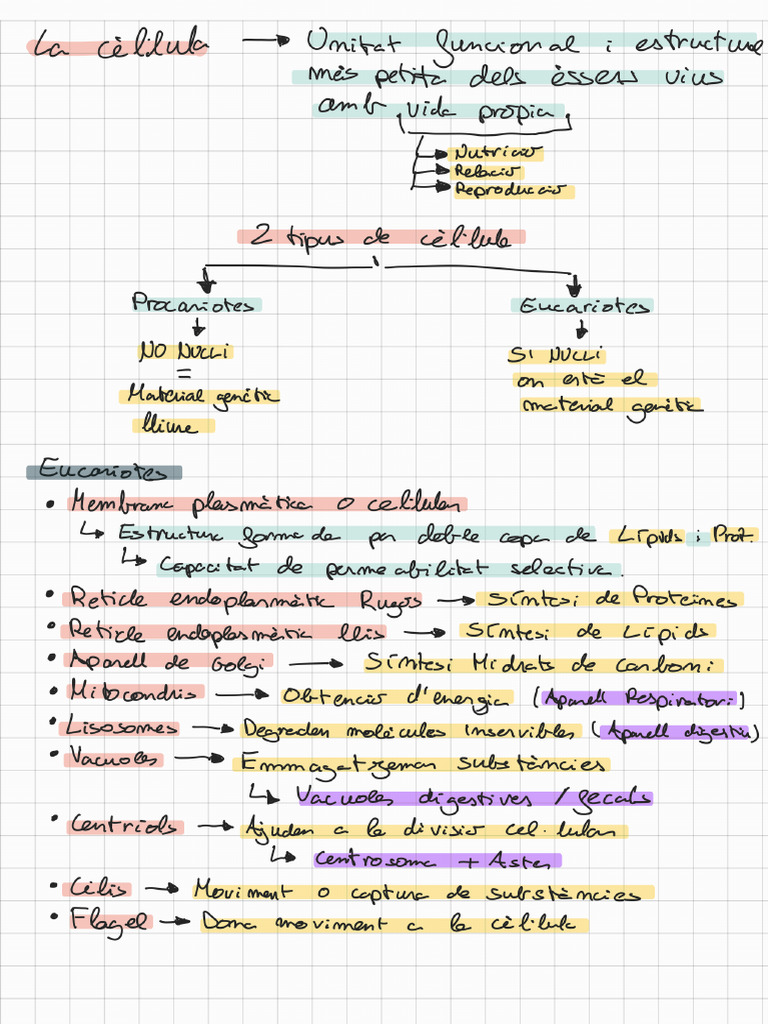 La cèl·lula → Unitat funcional i estructural
més petita dels éssers vius
amb vida pròpia
→ Nutrició
→ Relació
→ Reproducció
2 tipus de cèl·lula
Procariotes
Eucariotes
NO NUCLI
SI NUCLI
=
on està el
Material genètic
material genètic
lliure
Eucariotes
• Membrana plasmàtica o cel·lular
↳ Estructura formada per doble capa de Lípids i Prot.
↳ Capacitat de permeabilitat selectiva.
• Reticle endoplasmàtic Rugós → Síntesi de Proteïnes
• Reticle endoplasmàtic llis → Síntesi de Lípids
• Aparell de Golgi → Síntesi Hidrats de carboni
• Mitocondris → Obtenció d'energia (Aparell Respiratori)
• Lisosomes → Degraden molècules inservibles (Aparell digestiu)
• Vacuoles → Emmagatzeman substàncies
↳ Vacuoles digestives / fecals
• Centríols → Ajuden a la divisió cel·lular
↳ Centrosoma + Aster
• Cilis → Moviment o captura de substàncies
• Flagel → Dona moviment a la cèl·lula